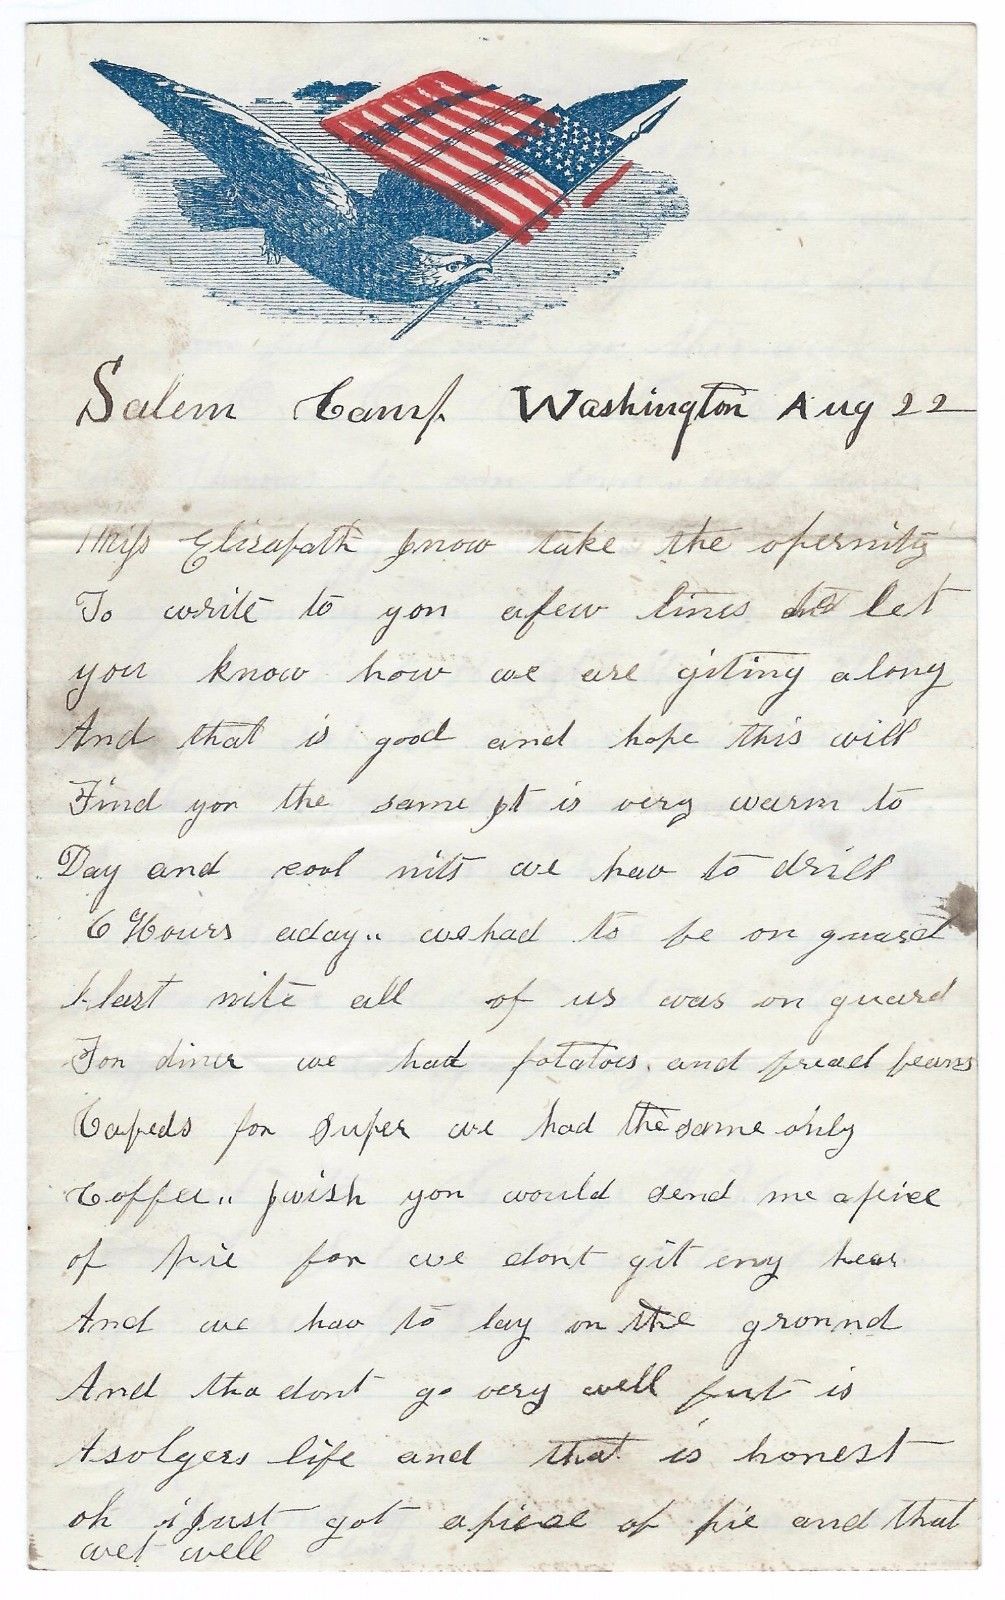 Salem Camp Washington Aug 22
Miss Elisabath I now take the opernity
To write to you afew lines to let
you know how we are giting along
And that is good and hope this will
Find you the same It is very warm to
Day and cool nits we hav to drill
6 Hours aday,, we had to be on guard
last nite all of us was on guard
For diner we had potatois and bread beans
for super we had the same only
Coffee,, I wish you would send me apiee
of pie for we dont git eny hear
And we hav to lay on the ground
And tha dont go very well but is
Asolgers life and that is honest
oh i Just got apiece of pie and that
wet well